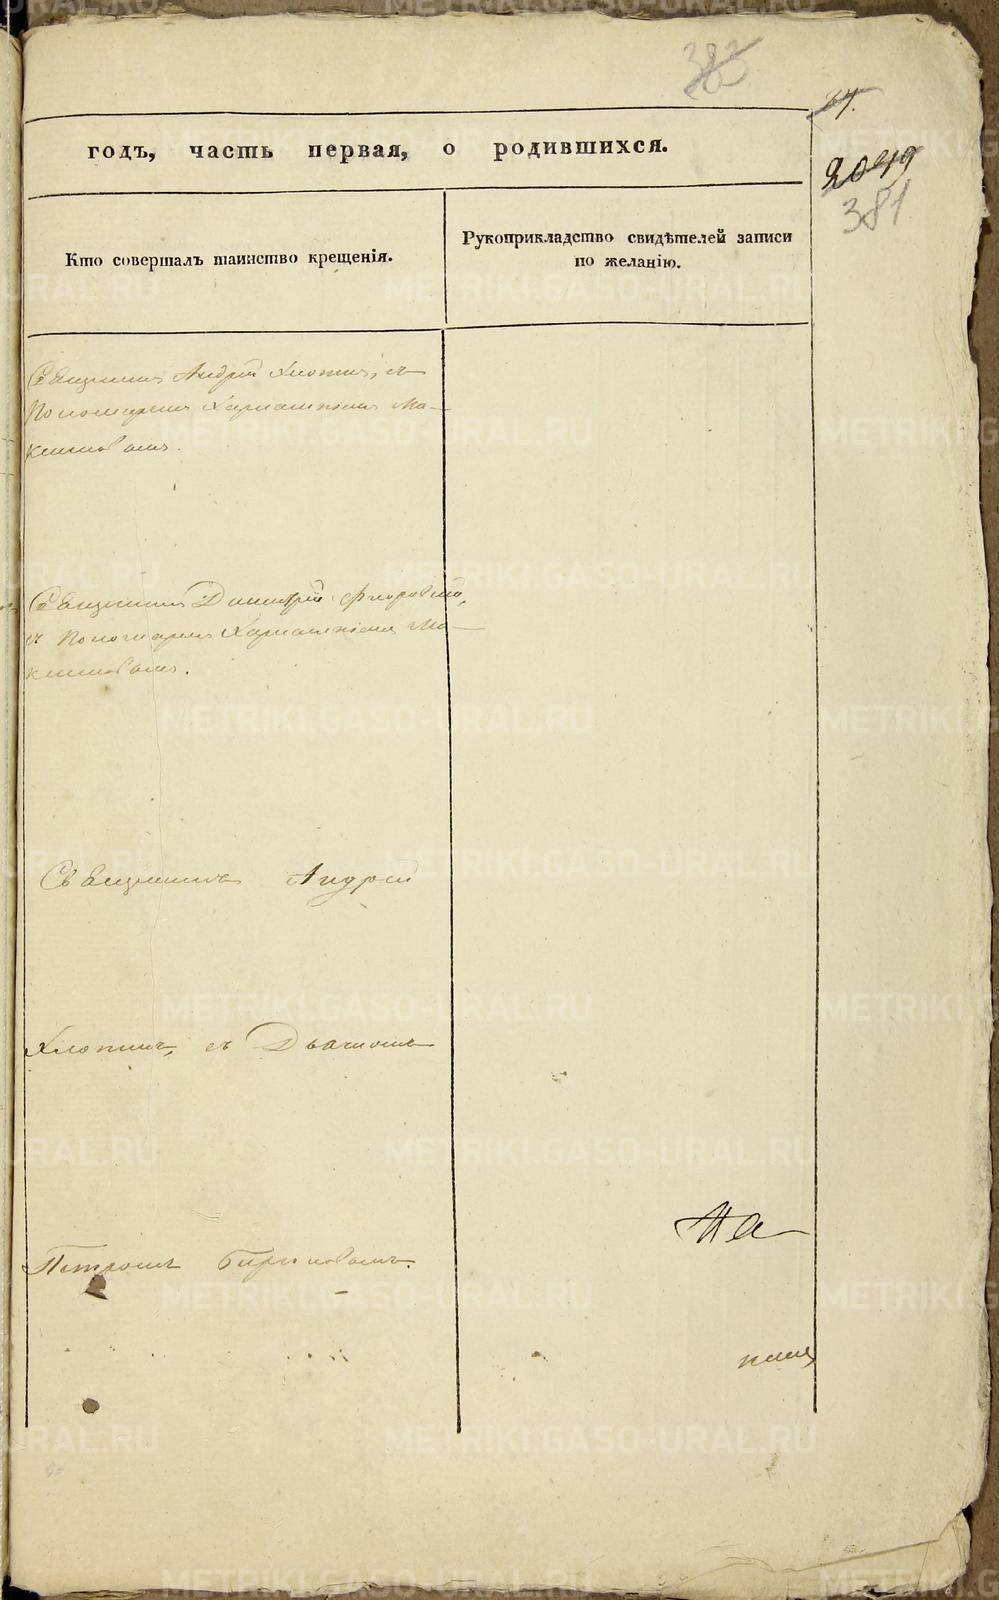 383
84.
годъ, часть первая, о родившихся.
2049
381
Кто совершалъ таинство крещенія.
Рукоприкладство свидѣтелей записи
по желанію.
Священникъ Андрей Хлопинъ, съ
Пономаремъ Харлампіемъ Ма-
Священникъ Димитрій
съ Пономаремъ Харлампіемъ Ма-
Священникъ Андрей
Хлопинъ, съ Дьячкомъ
Петромъ
METRIKI.GASO-URAL.RU